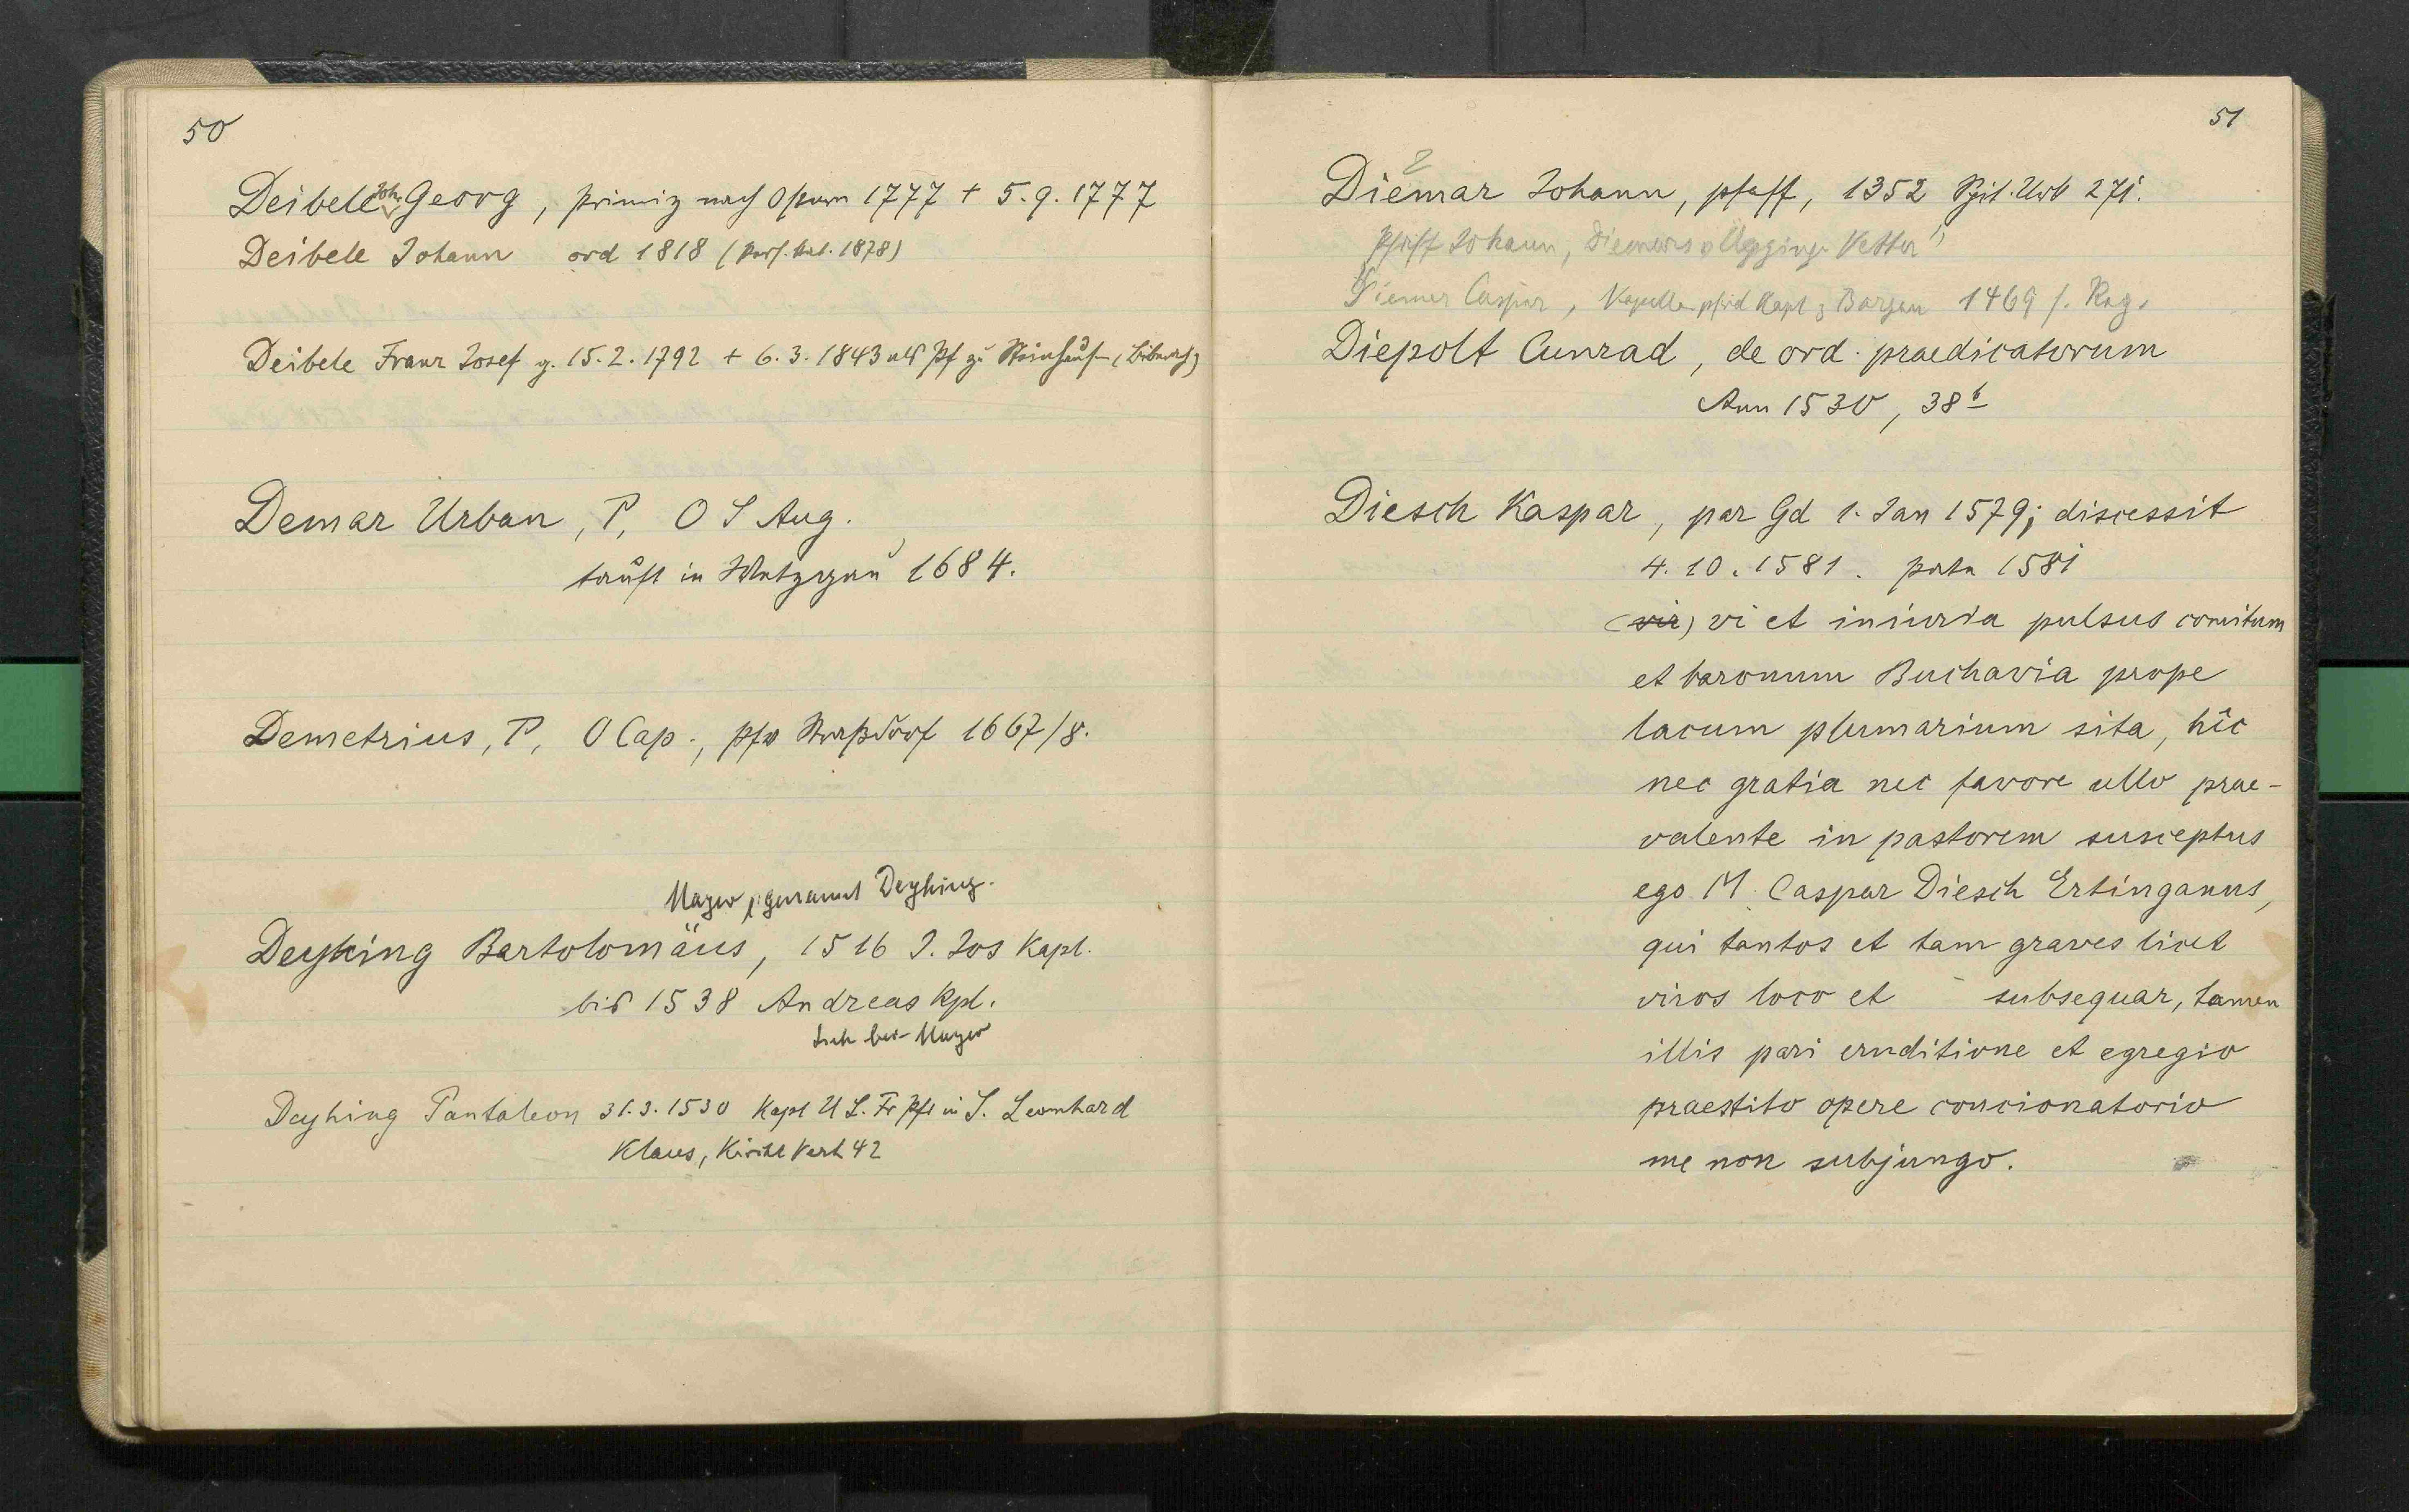 50
Deibele Joh. Georg, Primiz nach Ostern 1777 + 5.9.1777
Deibele Johann ord 1818 (Pers. Kat. 1878)
Deibele Franz Josef g. 15.2.1792 + 6.3.1843 als Pf zu Steinhausen (Biberach)
Demar Urban, P, O S Aug.
tauft in Wetzgau 1684.
Demetrius, P, O Cap., pfw Straßdorf 1667/8.
Mayer, genannt Deyhing.
Deyhing Bartolomäus, 1516 S. Jos Kapl.
bis 1538 Andreas Kpl.
sieh bei Mayer
Deyhing Pantaleon 31.3.1530 Kapl U L. Fr Pfl in S. Leonhard
Klaus, Kirche Verh 42
51
Diemar Johann, pfaff, 1352 Spit. Urb 271.
Pfaff Johann, Diemars Vetter
Diemer Caspar, Kapl z Bargen 1469 s. Reg.
Diepolt Cunrad, de ord. praedicatorum
Ann 1530, 38b
Diesch Kaspar, par Gd 1. Jan 1579; discessit
4.10.1581. 1581
(vir) vi et iniuria pulsus comitum
et baronum Buchavia prope
lacum plumarium sita, hîc
nec gratia nec favore ullo prae-
valente in pastorem susceptus
ego M. Caspar Diesch Ertinganus,
qui tantos et tam graves licet
viros loco et subsequar, tamen
illis pari eruditione et egregio
praestito opere concionatorio
me non subjungo.